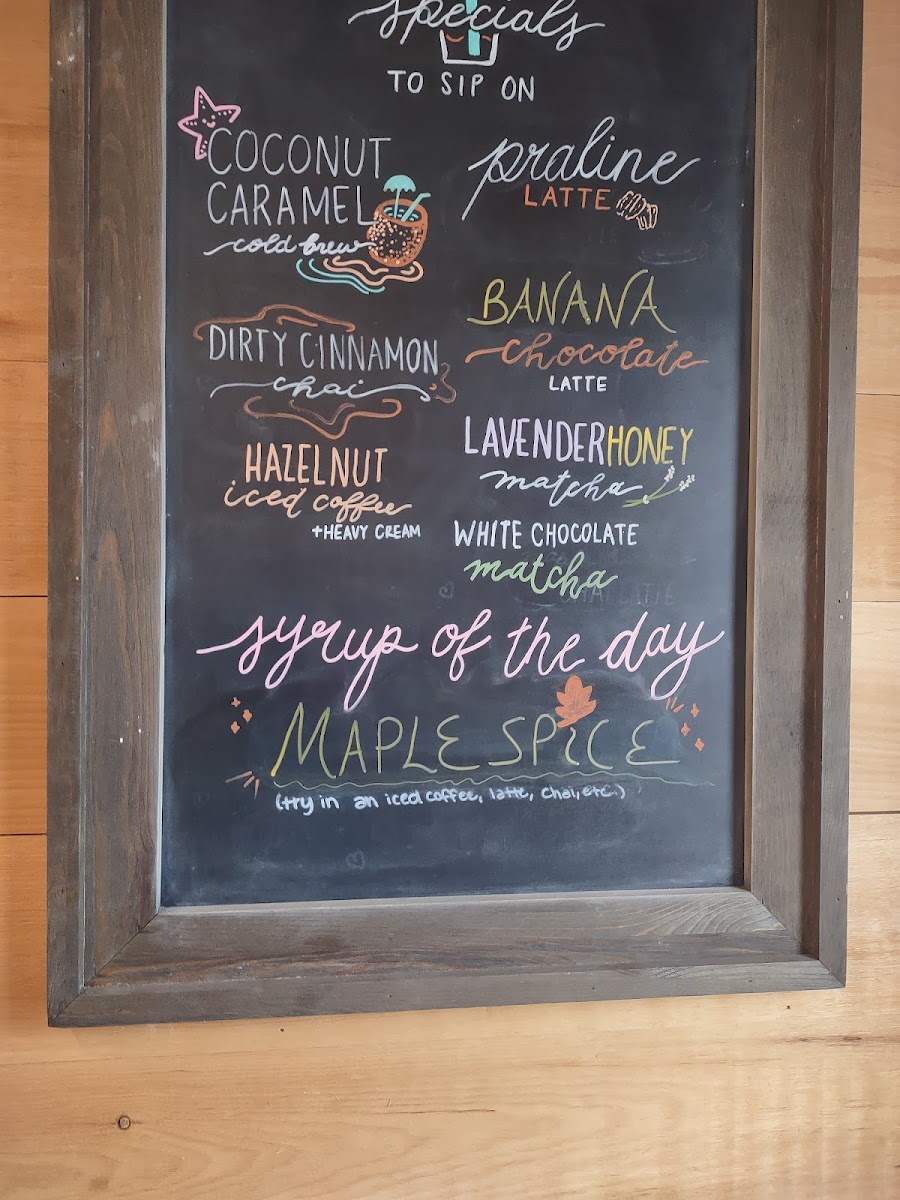 specials
TO SIP ON
COCONUT
CARAMEL
cold brew
DIRTY CINNAMON
chai
HAZELNUT
iced coffee
+HEAVY CREAM
praline
LATTE
BANANA
chocolate
LATTE
LAVENDER HONEY
matcha
WHITE CHOCOLATE
matcha
syrup of the day
MAPLE SPICE
(try in an iced coffee, latte, chai, etc..)